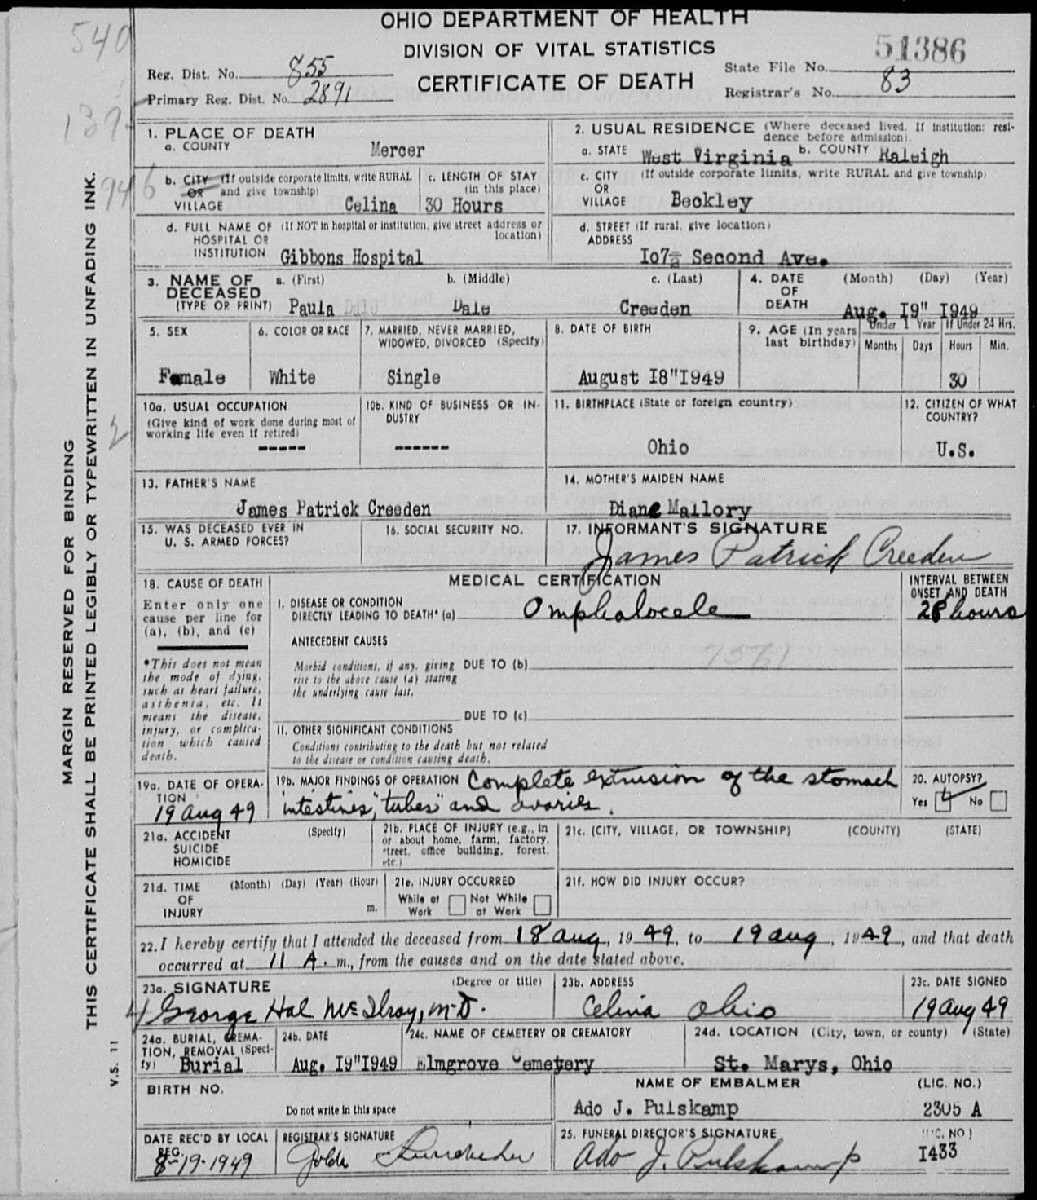 OHIO DEPARTMENT OF HEALTH
DIVISION OF VITAL STATISTICS
CERTIFICATE OF DEATH
540
139
946
2
Reg. Dist. No. 855
Primary Reg. Dist. No. 2891
51386
State File No.
Registrar's No. 83
MARGIN RESERVED FOR BINDING
THIS CERTIFICATE SHALL BE PRINTED LEGIBLY OR TYPEWRITTEN IN UNFADING INK.
V.S. 11
1. PLACE OF DEATH
a. COUNTY Mercer
2. USUAL RESIDENCE (Where deceased lived. If institution: resi-
dence before admission).
a. STATE West Virginia b. COUNTY Raleigh
b. CITY (If outside corporate limits, write RURAL
OR and give township)
VILLAGE Celina
c. LENGTH OF STAY
(in this place)
30 Hours
c. CITY (If outside corporate limits, write RURAL and give township)
OR
VILLAGE Beckley
d. FULL NAME OF (If NOT in hospital or institution, give street address or
HOSPITAL OR location)
INSTITUTION Gibbons Hospital
d. STREET (If rural, give location)
ADDRESS I07½ Second Ave.
3. NAME OF DECEASED
(TYPE OR PRINT)
a. (First) b. (Middle) c. (Last)
Paula Dale Creeden
4. DATE OF DEATH
(Month) (Day) (Year)
Aug. I9" I949
5. SEX
Female
6. COLOR OR RACE
White
7. MARRIED, NEVER MARRIED,
WIDOWED, DIVORCED (Specify)
Single
8. DATE OF BIRTH
August I8"I949
9. AGE (In years
last birthday)
Under 1 Year If Under 24 Hrs.
Months Days Hours Min.
30
10a. USUAL OCCUPATION
(Give kind of work done during most of
working life even if retired)
-----
10b. KIND OF BUSINESS OR IN-
DUSTRY
------
11. BIRTHPLACE (State or foreign country)
Ohio
12. CITIZEN OF WHAT
COUNTRY?
U.S.
13. FATHER'S NAME
James Patrick Creeden
14. MOTHER'S MAIDEN NAME
Diane Mallory
15. WAS DECEASED EVER IN
U. S. ARMED FORCES?
16. SOCIAL SECURITY NO.
17. INFORMANT'S SIGNATURE
James Patrick Creeden
18. CAUSE OF DEATH
Enter only one
cause per line for
(a), (b), and (c)
*This does not mean
the mode of dying,
such as heart failure,
asthenia, etc. It
means the disease,
injury, or complica-
tion which caused
death.
MEDICAL CERTIFICATION
INTERVAL BETWEEN
ONSET AND DEATH
I. DISEASE OR CONDITION
DIRECTLY LEADING TO DEATH* (a) Omphalocele
28 hours
ANTECEDENT CAUSES
Morbid conditions, if any, giving DUE TO (b)
rise to the above cause (a) stating
the underlying cause last.
7561
DUE TO (c)
II. OTHER SIGNIFICANT CONDITIONS
Conditions contributing to the death but not related
to the disease or condition causing death.
19a. DATE OF OPERA-
TION
19 Aug 49
19b. MAJOR FINDINGS OF OPERATION Complete extrusion of the stomach
intestines, tubes and ovaries.
20. AUTOPSY?
Yes No
21a. ACCIDENT (Specify)
SUICIDE
HOMICIDE
21b. PLACE OF INJURY (e.g., in
or about home, farm, factory,
street, office building, forest,
etc.)
21c. (CITY, VILLAGE, OR TOWNSHIP) (COUNTY) (STATE)
21d. TIME (Month) (Day) (Year) (Hour)
OF
INJURY m.
21e. INJURY OCCURRED
While at Not While
Work at Work
21f. HOW DID INJURY OCCUR?
22. I hereby certify that I attended the deceased from 18 Aug, 1949, to 19 Aug, 1949, and that death
occurred at 11 A. m., from the causes and on the date stated above.
23a. SIGNATURE (Degree or title)
George Hal McIlroy, M.D.
23b. ADDRESS
Celina Ohio
23c. DATE SIGNED
19 Aug 49
24a. BURIAL, CREMA-
TION, REMOVAL (Speci-
fy) Burial
24b. DATE
Aug. I9"I949
24c. NAME OF CEMETERY OR CREMATORY
Elmgrove Cemetery
24d. LOCATION (City, town, or county) (State)
St. Marys, Ohio
BIRTH NO.
Do not write in this space
NAME OF EMBALMER (LIC. NO.)
Ado J. Pulskamp 2305 A
DATE REC'D BY LOCAL
REG.
8-19-1949
REGISTRAR'S SIGNATURE
Golda
25. FUNERAL DIRECTOR'S SIGNATURE (LIC. NO.)
Ado J. Pulskamp I433